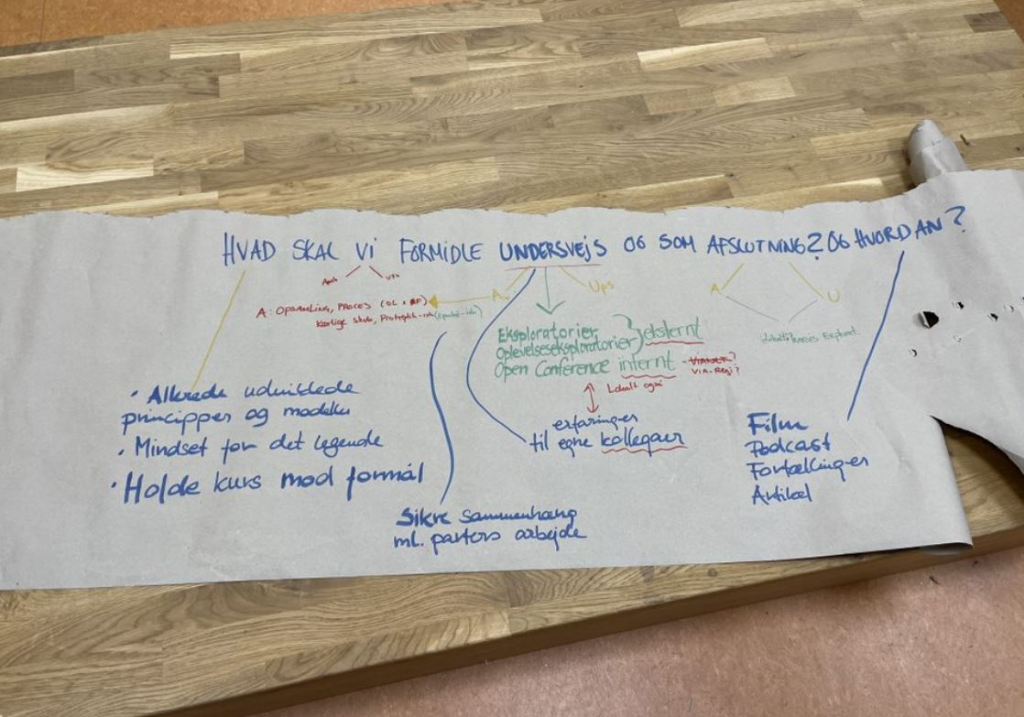 HVAD SKAL VI FORMIDLE UNDERSVEJS OG SOM AFSLUTNING? OG HVORDAN?
A U
A: Opsamling, PROCES
Eksploratorier
Oplevelseseksploratorier } eksternt
Open Conference internt
VIA-Regi?
Lokalt også
erfaringer
til egne kollegaer
• Allerede udviklede
principper og modeller
• Mindset for det legende
• Holde kurs mod formål
Sikre sammenhæng
ml. parters arbejde
Film
Podcast
Fortællinger
Artikel